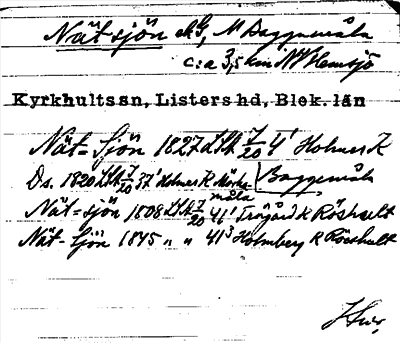 Nätsjön akG, N Baggemåla
c:a 3,5 km NV Hemsjö
Kyrkhults sn, Listers hd, Blek. län
Nät=Sjön 1827 LSA 7/20 41' Holmer K
Ds. 1820 LSA 7/20 37' Holmer K Mörke- Baggemåla
måla
Nät=sjön 1808 LSA 7/20 41' Trägård K Röshult
Nät-Sjön 1845 " " 41³ Holmberg K Röeshult